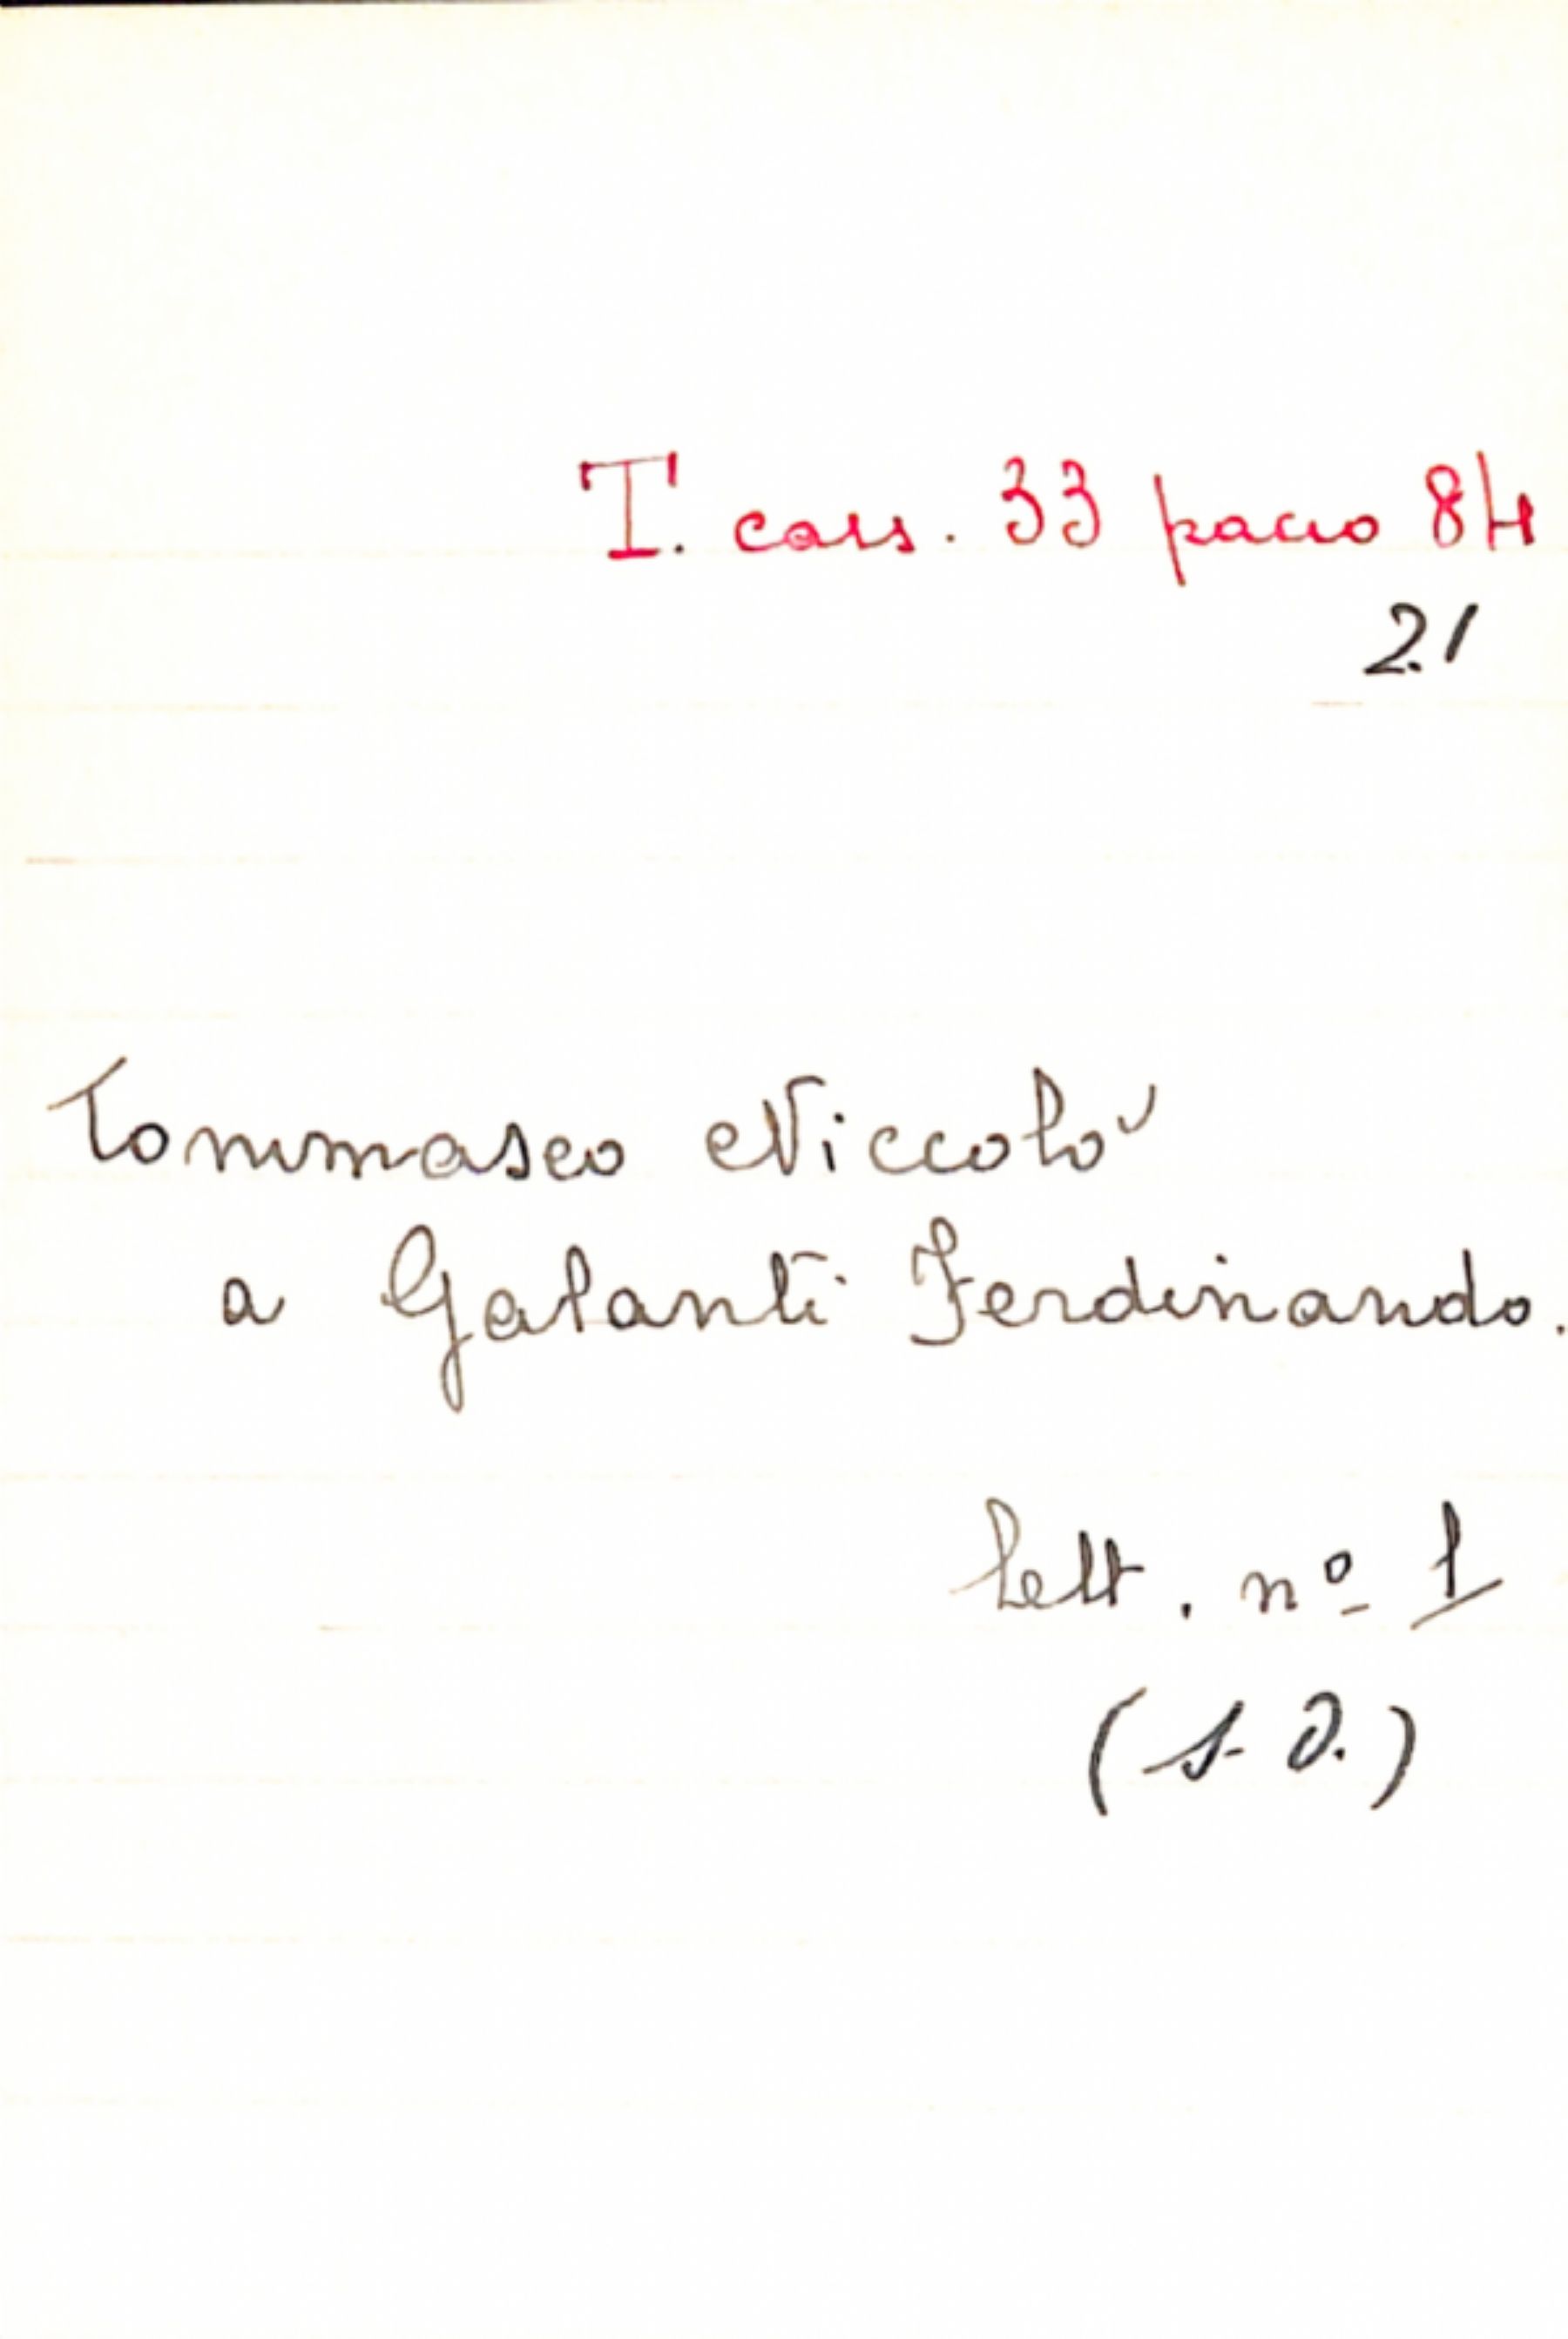 T. cass. 33 pacco 84
21
Tommaseo Niccolò
a Galanti Ferdinando.
Lett. nº 1
(s. d.)